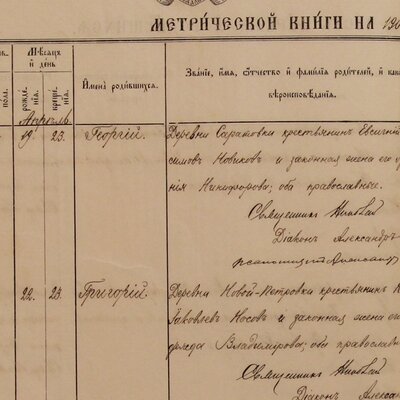 МЕТРИ́ЧЕСКОЙ КНИ́ГИ НА 190
Мѣсяцъ
и день
пола.
рожде-
нія.
креще-
нія.
Имена родившихся.
Званіе, имя, отчество и фамилія родителей, и како
вѣроисповѣданія.
Апрѣль
19
23.
Георгій.
Деревни Саратовки крестьянинъ Евсигній
симовъ Новиковъ и законная жена его
нія Никифорова; оба православные.
Священникъ Николай
Діаконъ Александръ
Псаломщикъ Александръ
22.
23.
Григорій.
Деревни Новой-Петровки крестьянинъ
Іаковлевъ Носовъ и законная жена его
Владимірова; оба православн
Священникъ Николай
Діаконъ Алекса